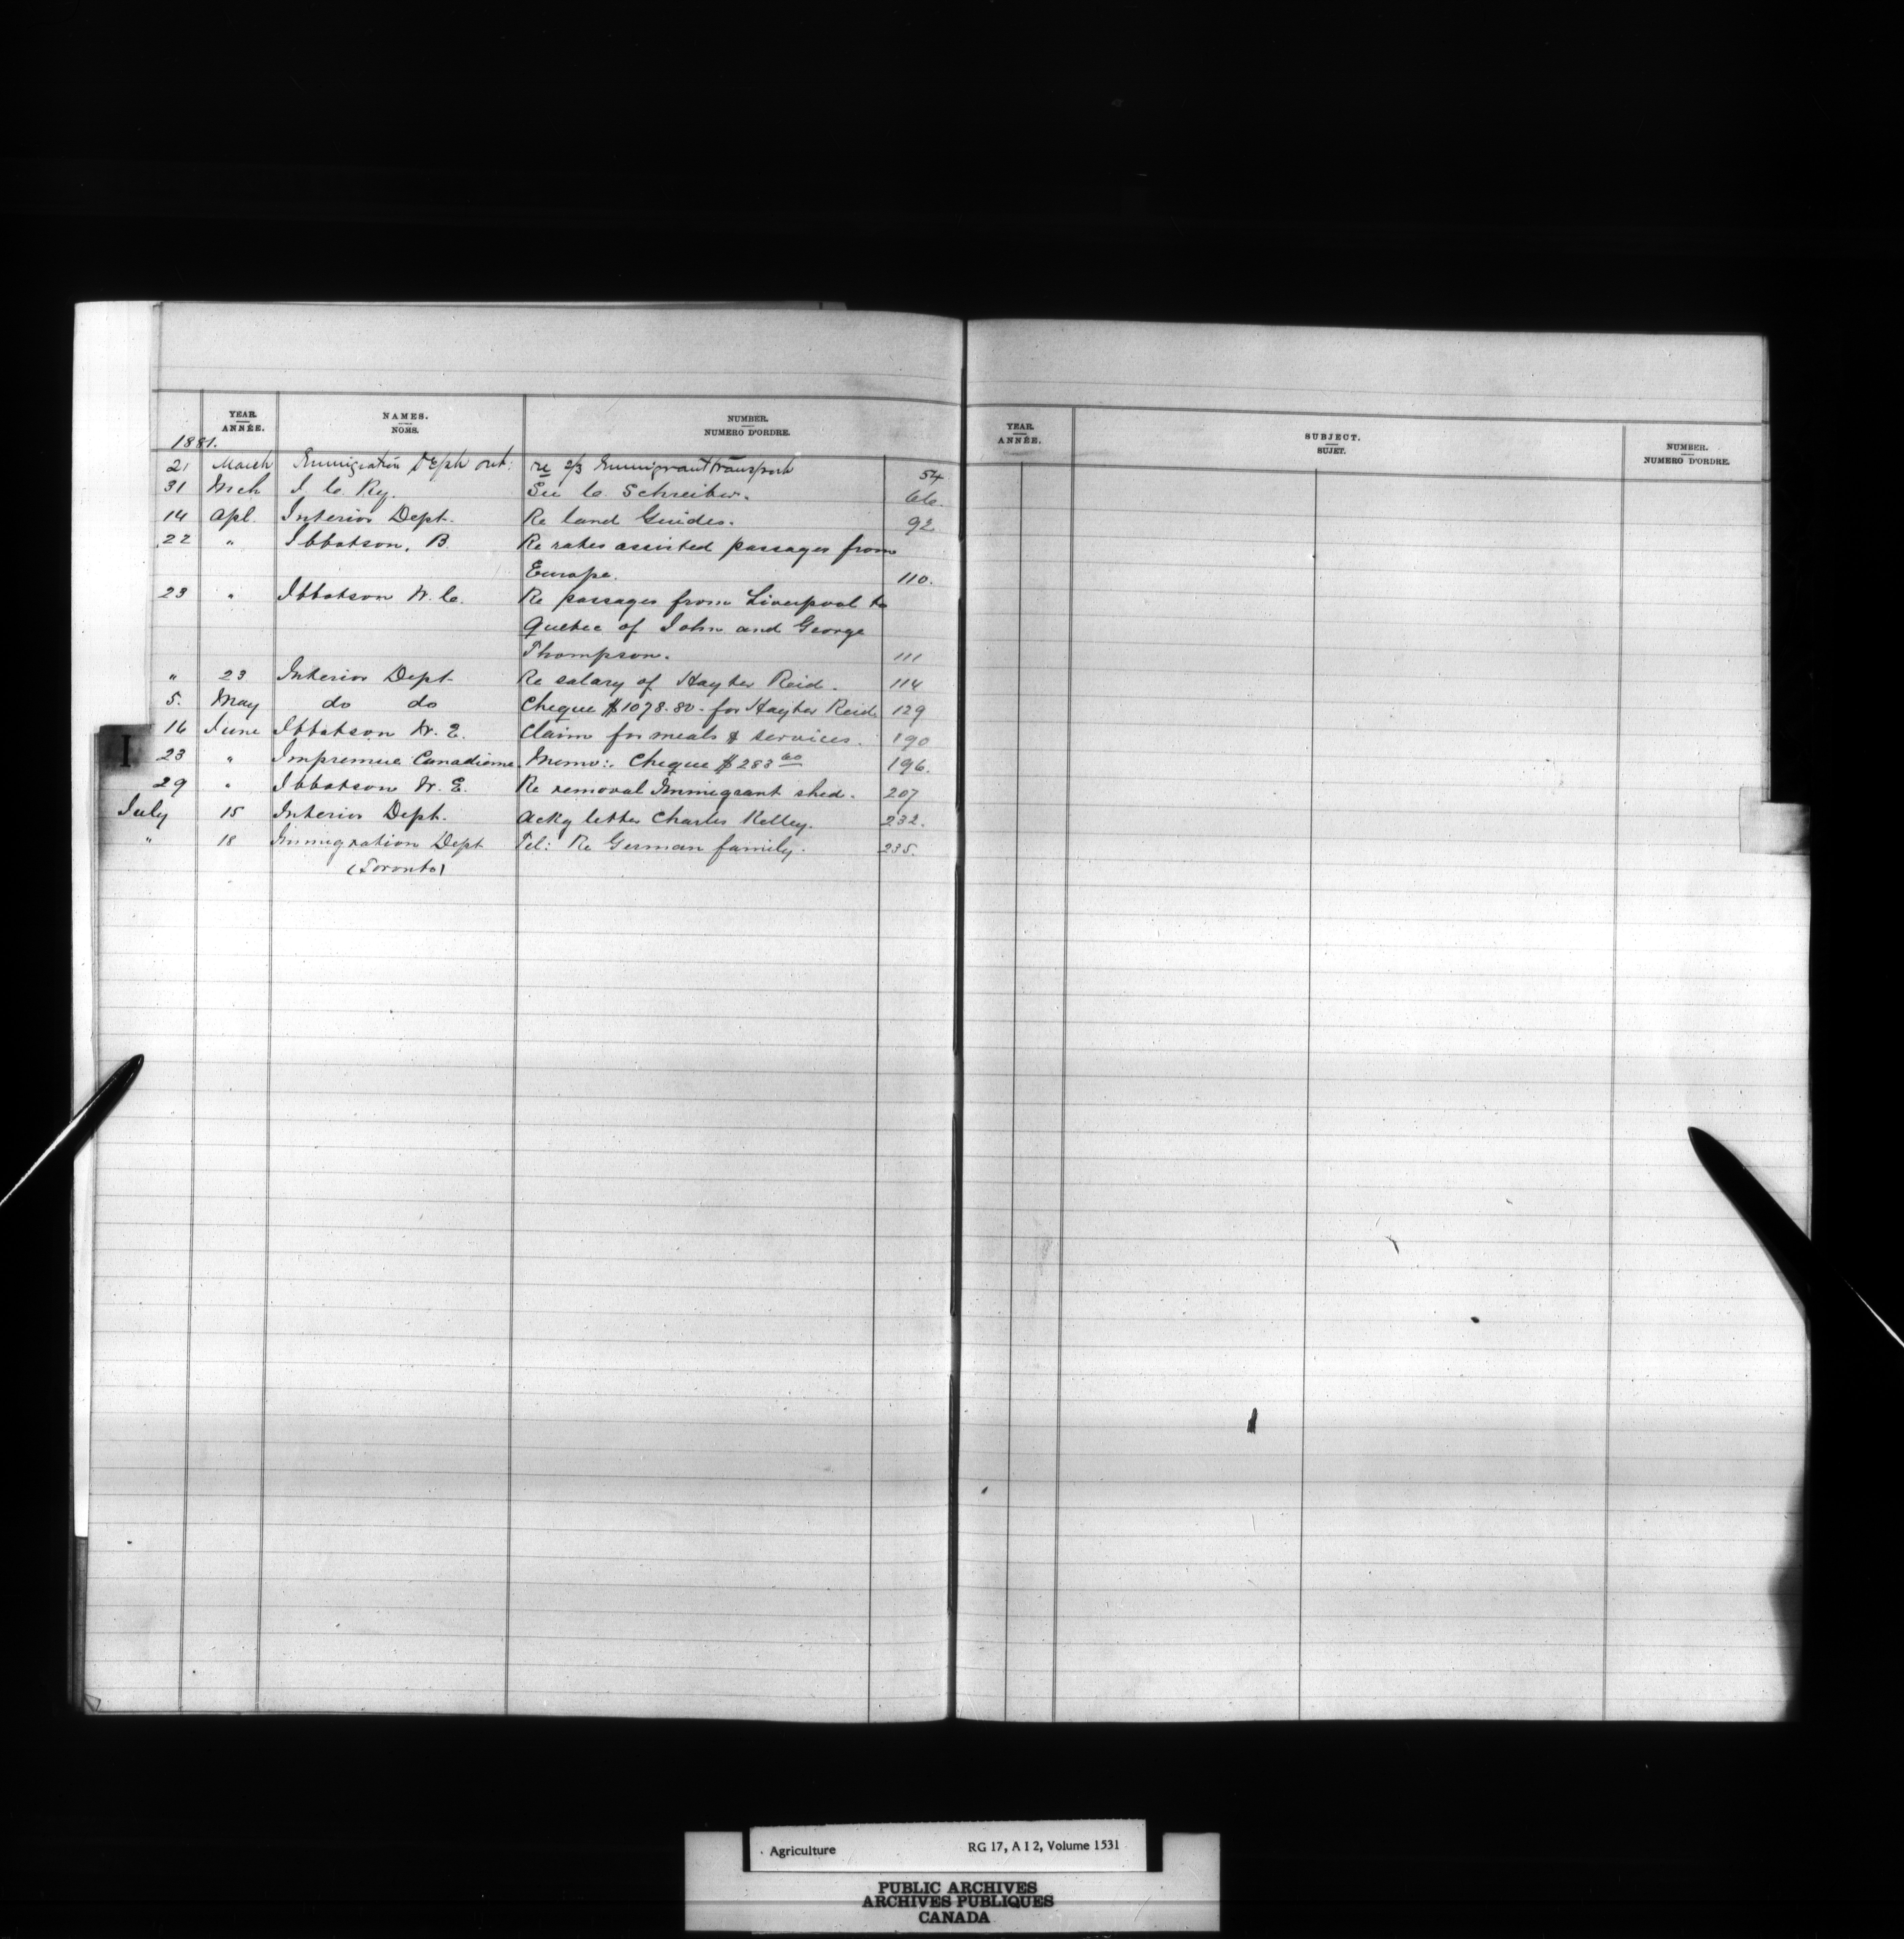 YEAR. ANNÉE. NAMES. NOMS. NUMBER. NUMERO D'ORDRE.
1881.
21 March Immigration Deptt ont: re 2/3 Immigrant transport 54
31 Mch I. C. Ry. See C. Schreiber. 66.
14 Apl. Interior Dept. Re land Guides. 92
22 " Ibbotson, B. Re rates assisted passages from
Europe. 110.
23 " Ibbotson W. C. Re passages from Liverpool to
Quebec of John and George
Thompson. 111
" 23 Interior Dept Re salary of Hayter Reid. 114
5. May do do Cheque $1078.80. for Hayter Reid 129
16 June Ibbotson W. E. Claim for meals & services. 190
23 " Impremue Canadienne. Memo:. Cheque $283 60 196.
29 " Ibbotson W. E. Re removal Immigrant shed. 207
July 15 Interior Dept. Ackg letter Charles Kelley. 232.
" 18 Immigration Dept Tel: Re German family. 235.
(Toronto)
I
YEAR. ANNÉE. SUBJECT. SUJET. NUMBER. NUMERO D'ORDRE.
Agriculture RG 17, A I 2, Volume 1531
PUBLIC ARCHIVES
ARCHIVES PUBLIQUES
CANADA